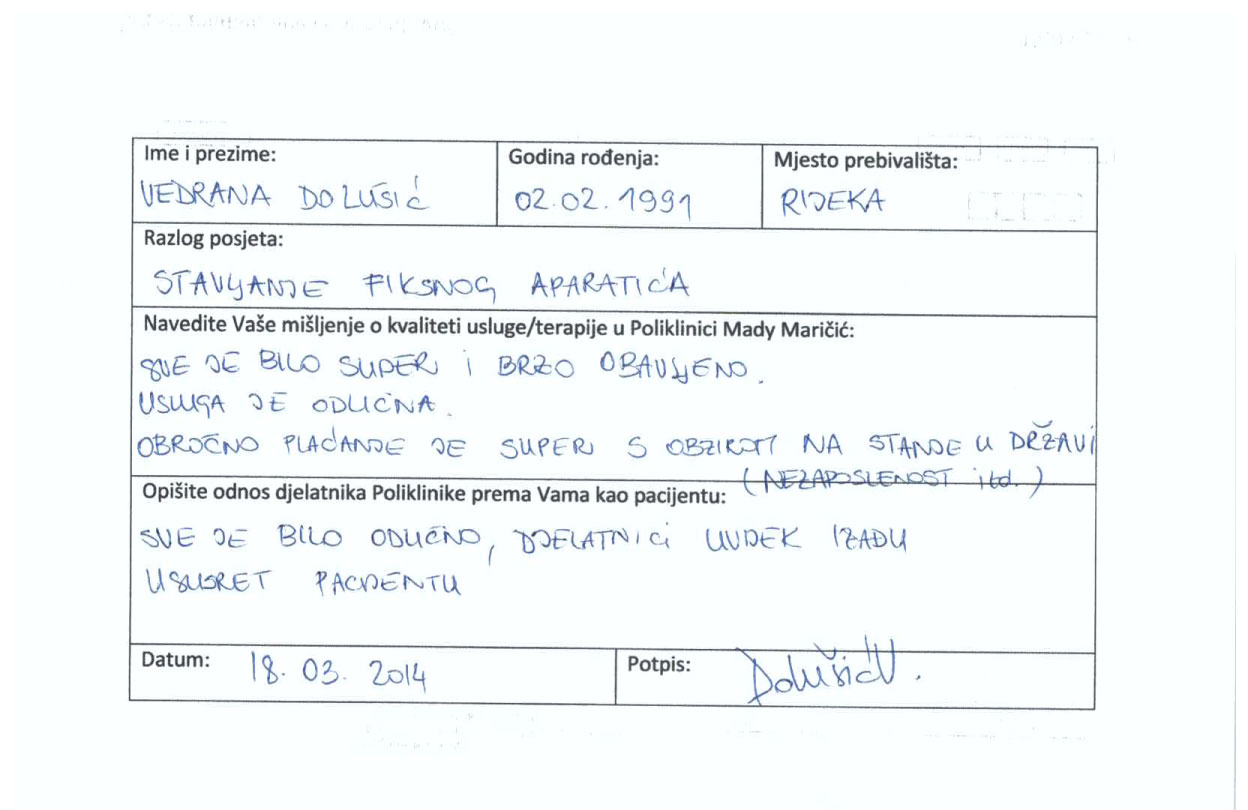 Ime i prezime: Godina rođenja: Mjesto prebivališta:
VEDRANA DOLUŠIĆ 02.02.1991 RIJEKA
Razlog posjeta:
STAVLJANJE FIKSNOG APARATIĆA
Navedite Vaše mišljenje o kvaliteti usluge/terapije u Poliklinici Mady Maričić:
SVE JE BILO SUPER I BRZO OBAVLJENO.
USLUGA JE ODLIČNA.
OBROČNO PLAĆANJE JE SUPER S OBZIROM NA STANJE U DRŽAVI
(NEZAPOSLENOST itd.)
Opišite odnos djelatnika Poliklinike prema Vama kao pacijentu:
SVE JE BILO ODLIČNO, DJELATNICI UVIJEK IZAĐU
USUSRET PACIJENTU
Datum: 18. 03. 2014 Potpis: Dolušić V.